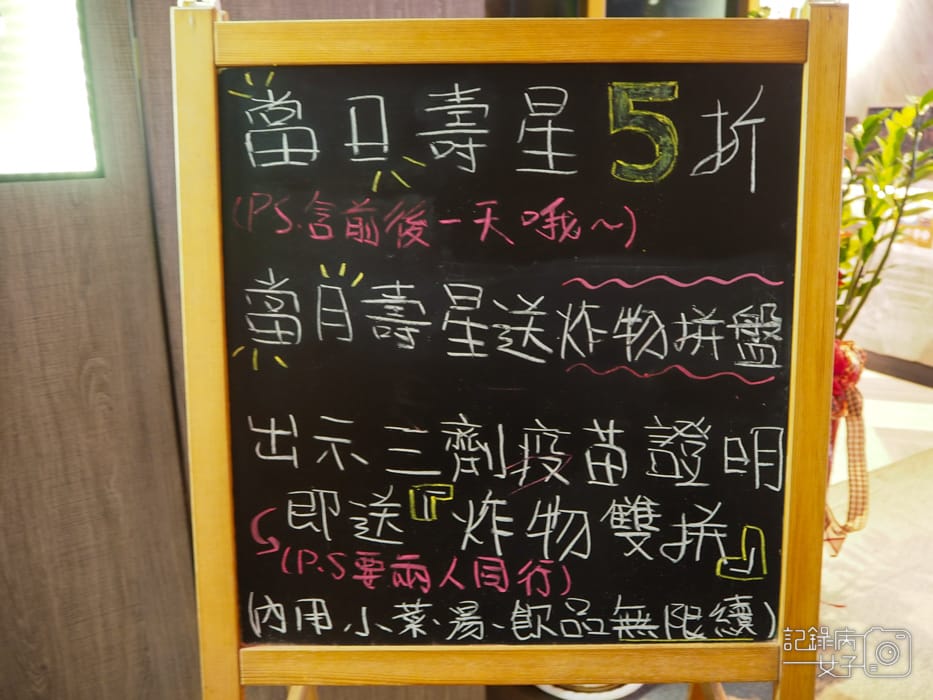 當日壽星5折
(PS.含前後一天哦~)
當月壽星送炸物拼盤
出示三劑疫苗證明
即送『炸物雙拼』
(P.S要兩人同行)
(內用小菜、湯、飲品無限續)
記錄病
女子